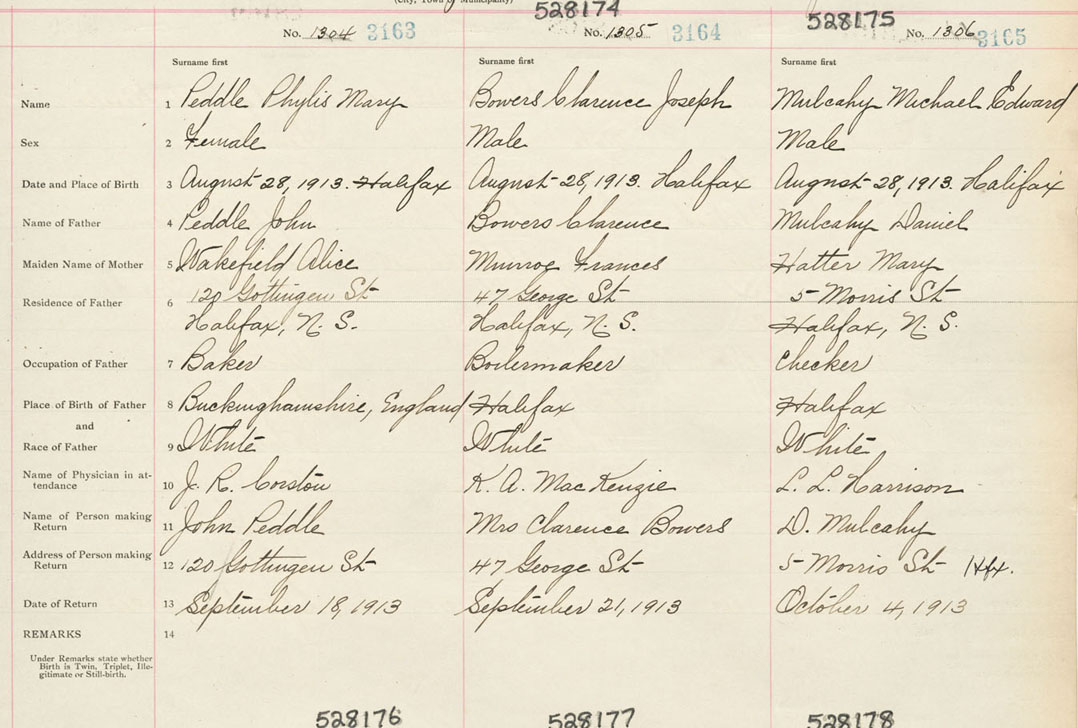 (City, Town or Municipality)
528174
528175
No. 1304 3163
No. 1305 3164
No. 1306 3165
Surname first
Surname first
Surname first
Name 1 Peddle Phylis Mary
Bowers Clarence Joseph
Mulcahy Michael Edward
Sex 2 Female
Male
Male
Date and Place of Birth 3 August 28, 1913. Halifax
August 28, 1913. Halifax
August 28, 1913. Halifax
Name of Father 4 Peddle John
Bowers Clarence
Mulcahy Daniel
Maiden Name of Mother 5 Wakefield Alice
Munroe Frances
Hatter Mary
Residence of Father 6 120 Gottingen St
47 George St
5 Morris St
Halifax, N. S.
Halifax, N. S.
Halifax, N. S.
Occupation of Father 7 Baker
Boilermaker
Checker
Place of Birth of Father 8 Buckinghamshire, England
Halifax
Halifax
and
Race of Father 9 White
White
White
Name of Physician in at-
tendance 10 J. R. Corston
K. A. MacKenzie
L. L. Harrison
Name of Person making
Return 11 John Peddle
Mrs Clarence Bowers
D. Mulcahy
Address of Person making
Return 12 120 Gottingen St
47 George St
5 Morris St Hfx.
Date of Return 13 September 18, 1913
September 21, 1913
October 4, 1913
REMARKS 14
Under Remarks state whether
Birth is Twin, Triplet, Ille-
gitimate or Still-birth.
528176
528177
528178